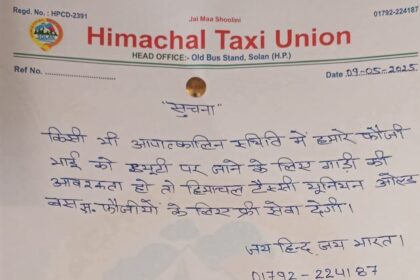 Regd. No. : HPCD-2391
Jai Maa Shoolini
01792-224187
SOLAN
Himachal Taxi Union
HEAD OFFICE:- Old Bus Stand, Solan (H.P.)
Ref No. ..........
Date 09-05-2025
"सुचना"
किसी भी आपातकालिन स्थिति में हमारे फौजी
भाई को ड्यूटी पर जाने के लिए गाड़ी की
आवश्यकता हो तो हिमाचल टैक्सी यूनियन ओल्ड
बस स्टै. फौजीयों के लिए फ्री सेवा देगी।
जय हिन्द जय भारत।
01792-224187